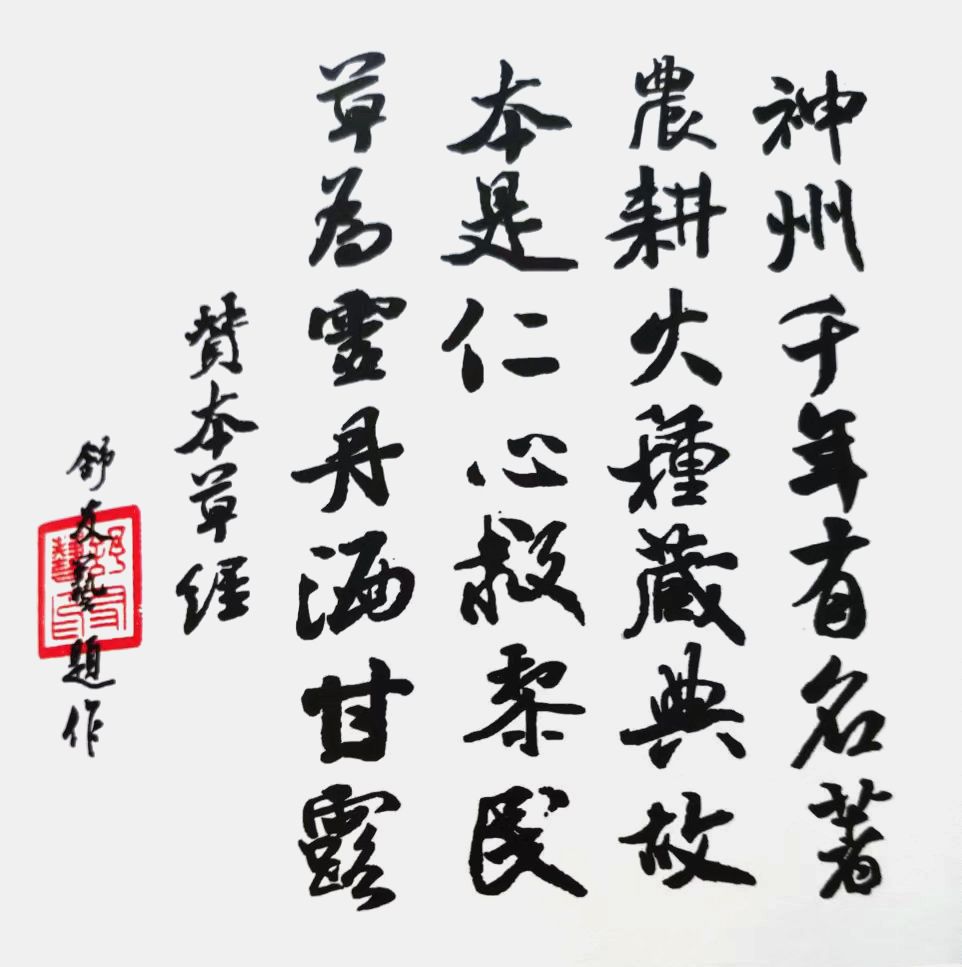 神州千年有名著
農耕火種藏典故
本是仁心救黎民
草為靈丹洒甘露
贊本草經
舒友藝題作